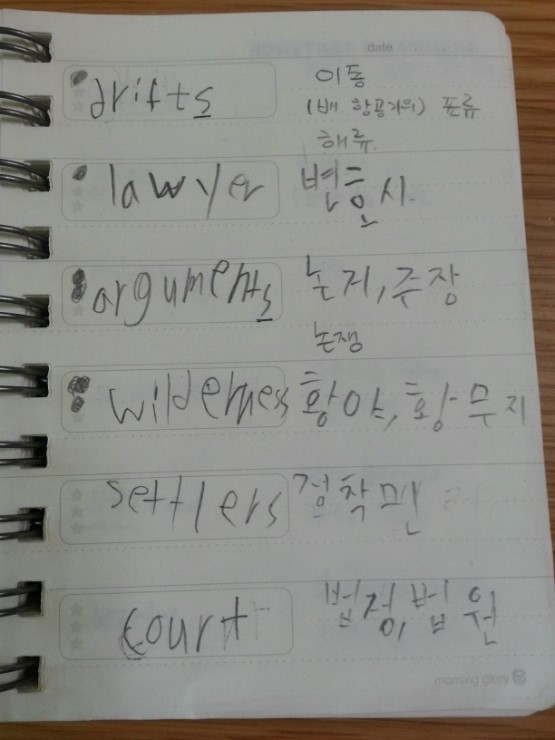 date
drifts 이동
(배 항공기의) 표류
해류
lawyer 변호사.
arguments 논거, 주장
논쟁
wilderness 황야, 황무지
settlers 정착민
court 법정, 법원
morning glory